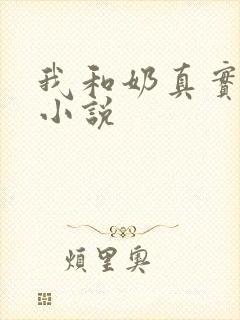 我和奶真實
小說
煩里奧